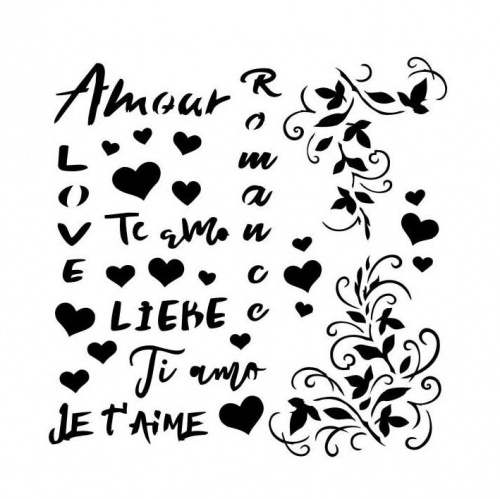 Amour
Romance
LOVE
Te amo
LIEBE
Ti amo
JE T'AIME